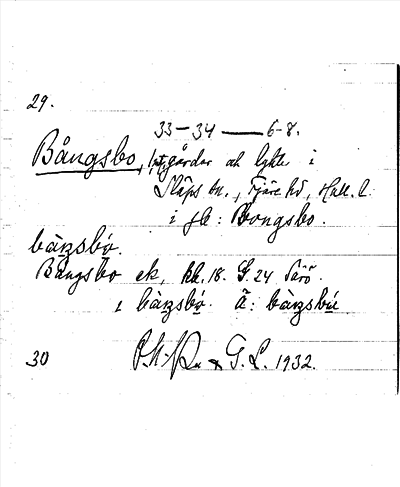 29.
33-34 — 6-8.
Bångsbo, gårdar och lght. i
Släps sn., Fjäre hd, Hall. l.
i jb: Bongsbo.
bàŋsbo.
Bångsbo ek, kbl. 18. G. 24 Särö
i bàŋsbo. ä: bàŋsbu
30 G. L. 1932.